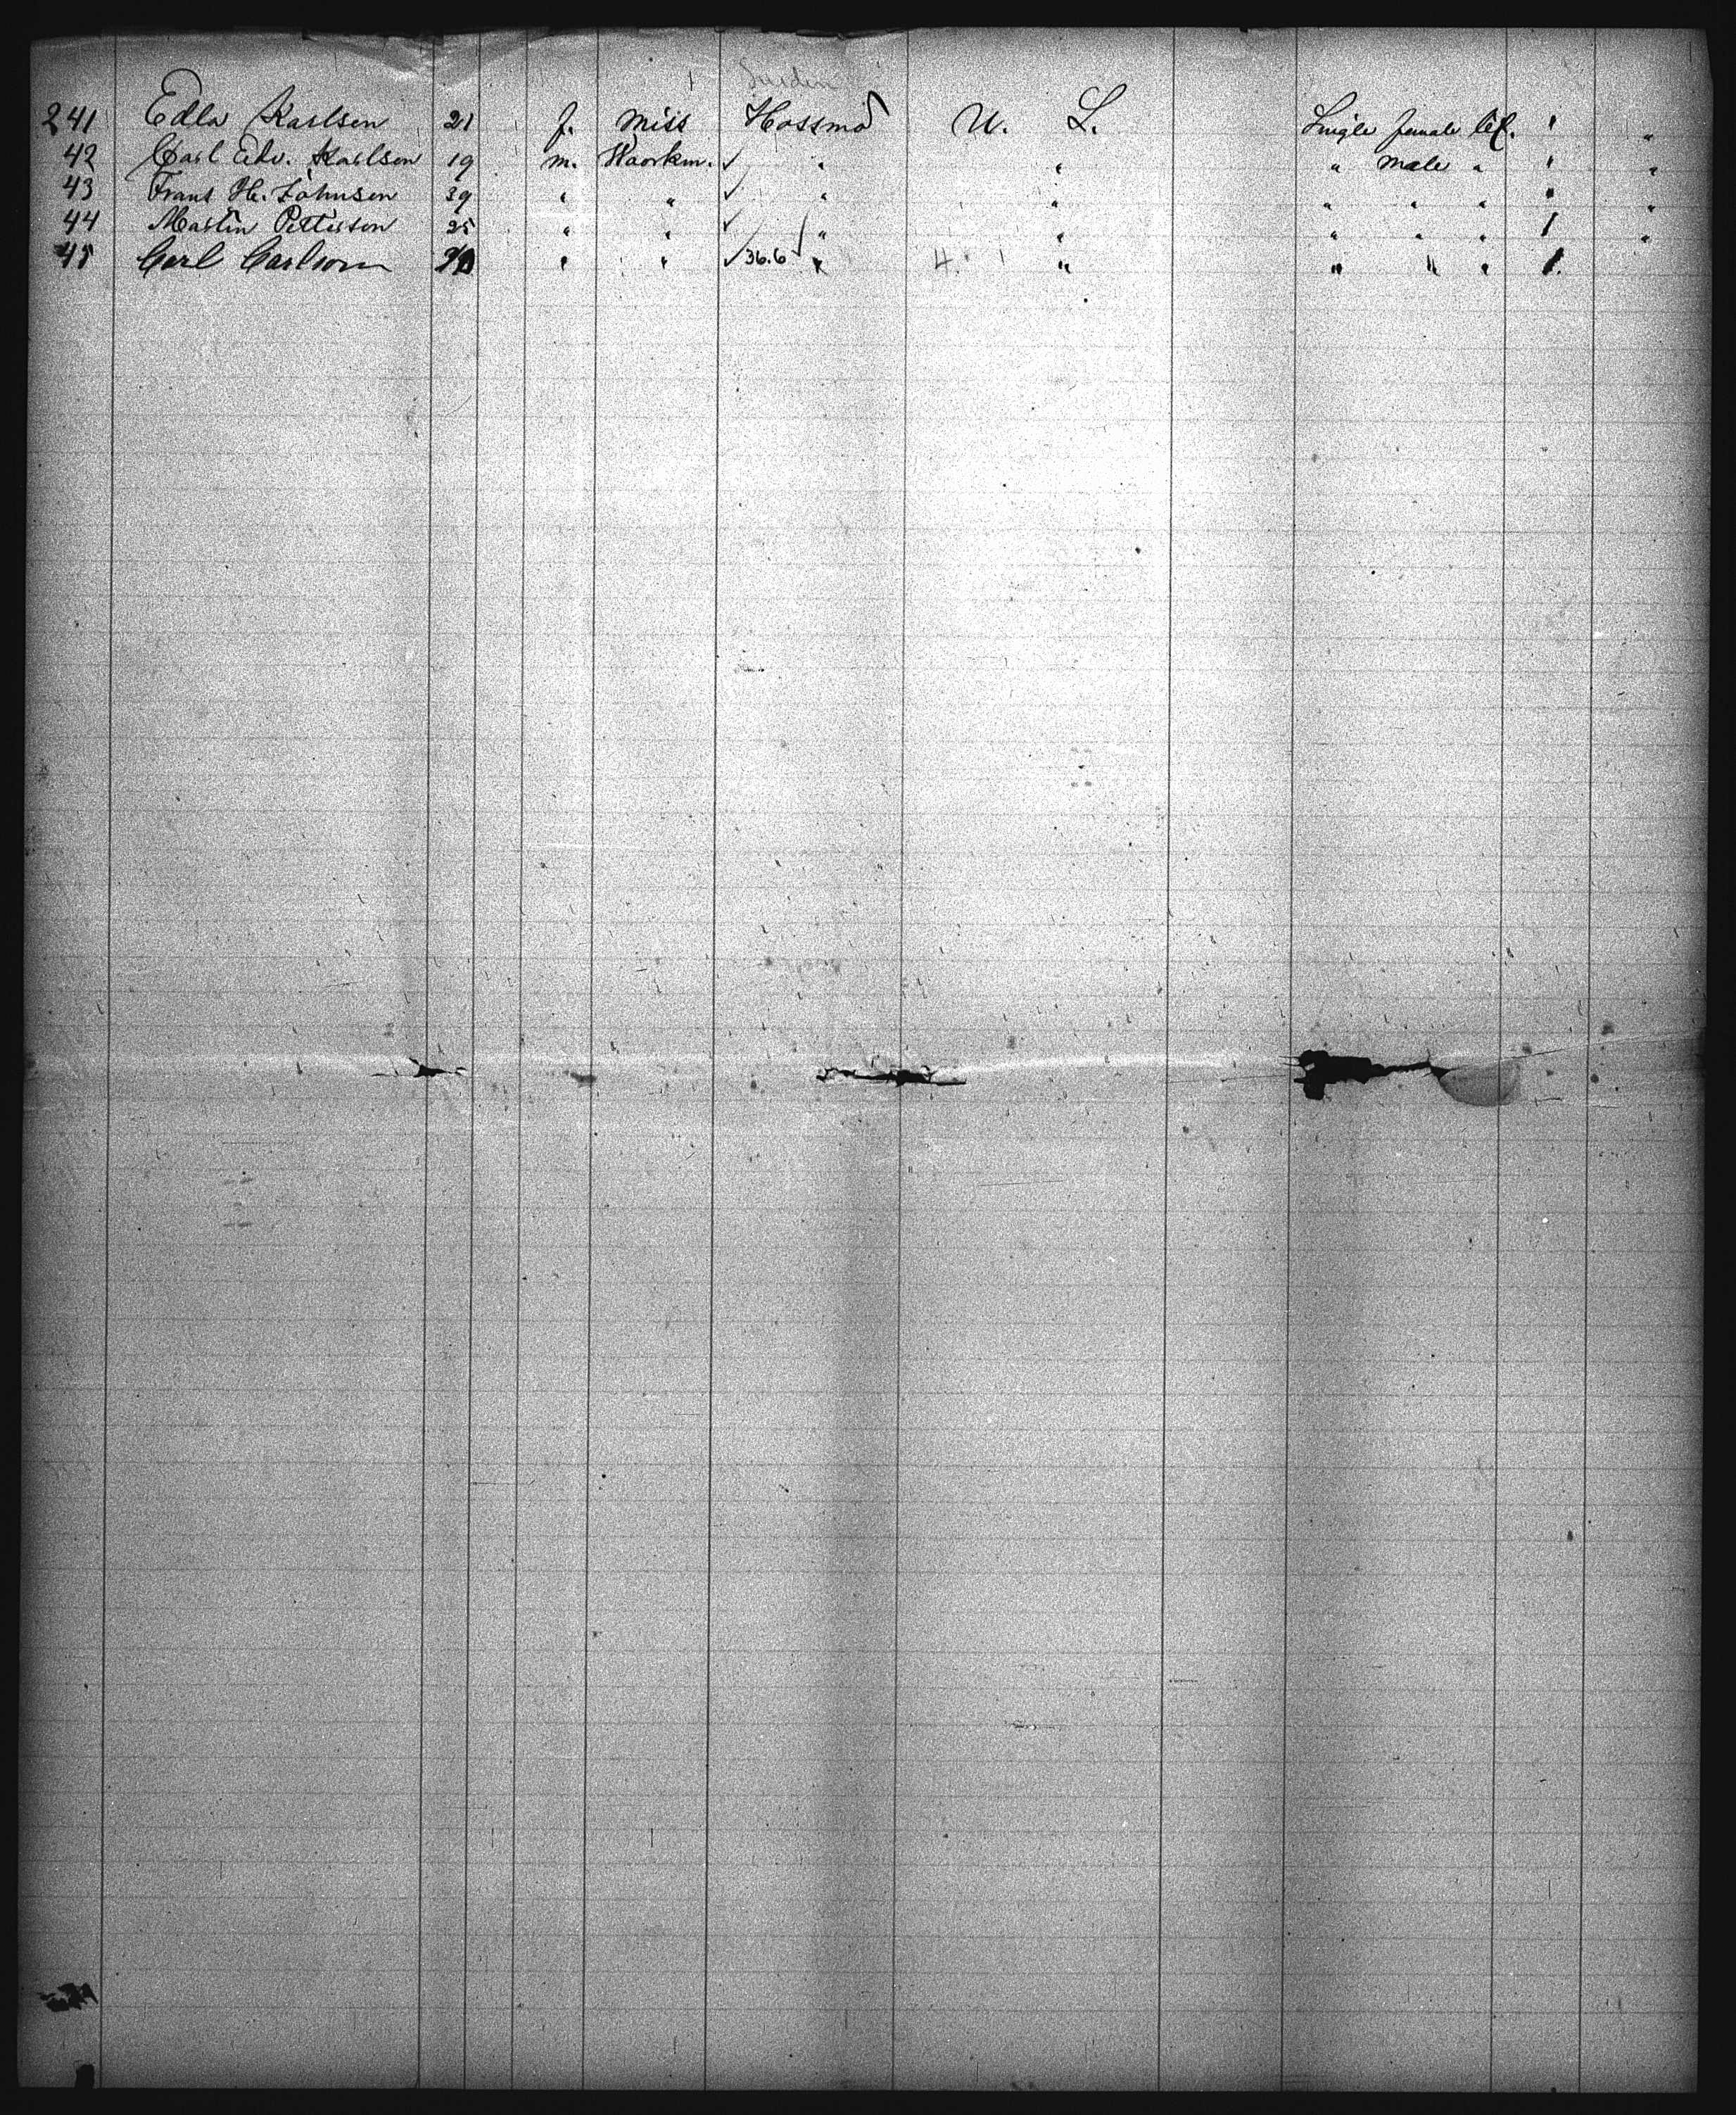 Sweden
241 Edla Karlsen 21 f. Miss Hossmo U. S. Single female bef. 1 "
42 Carl Edv. Karlsen 19 m. Woorkm. ✓ " " " male " 1 "
43 Frans He. Johnsen 39 " " ✓ " " " " " " "
44 Martin Pettersen 25 " " ✓ " " " " " 1 "
45 Carl Carlsom " " ✓ 36.6 " 4. " " " " 1.